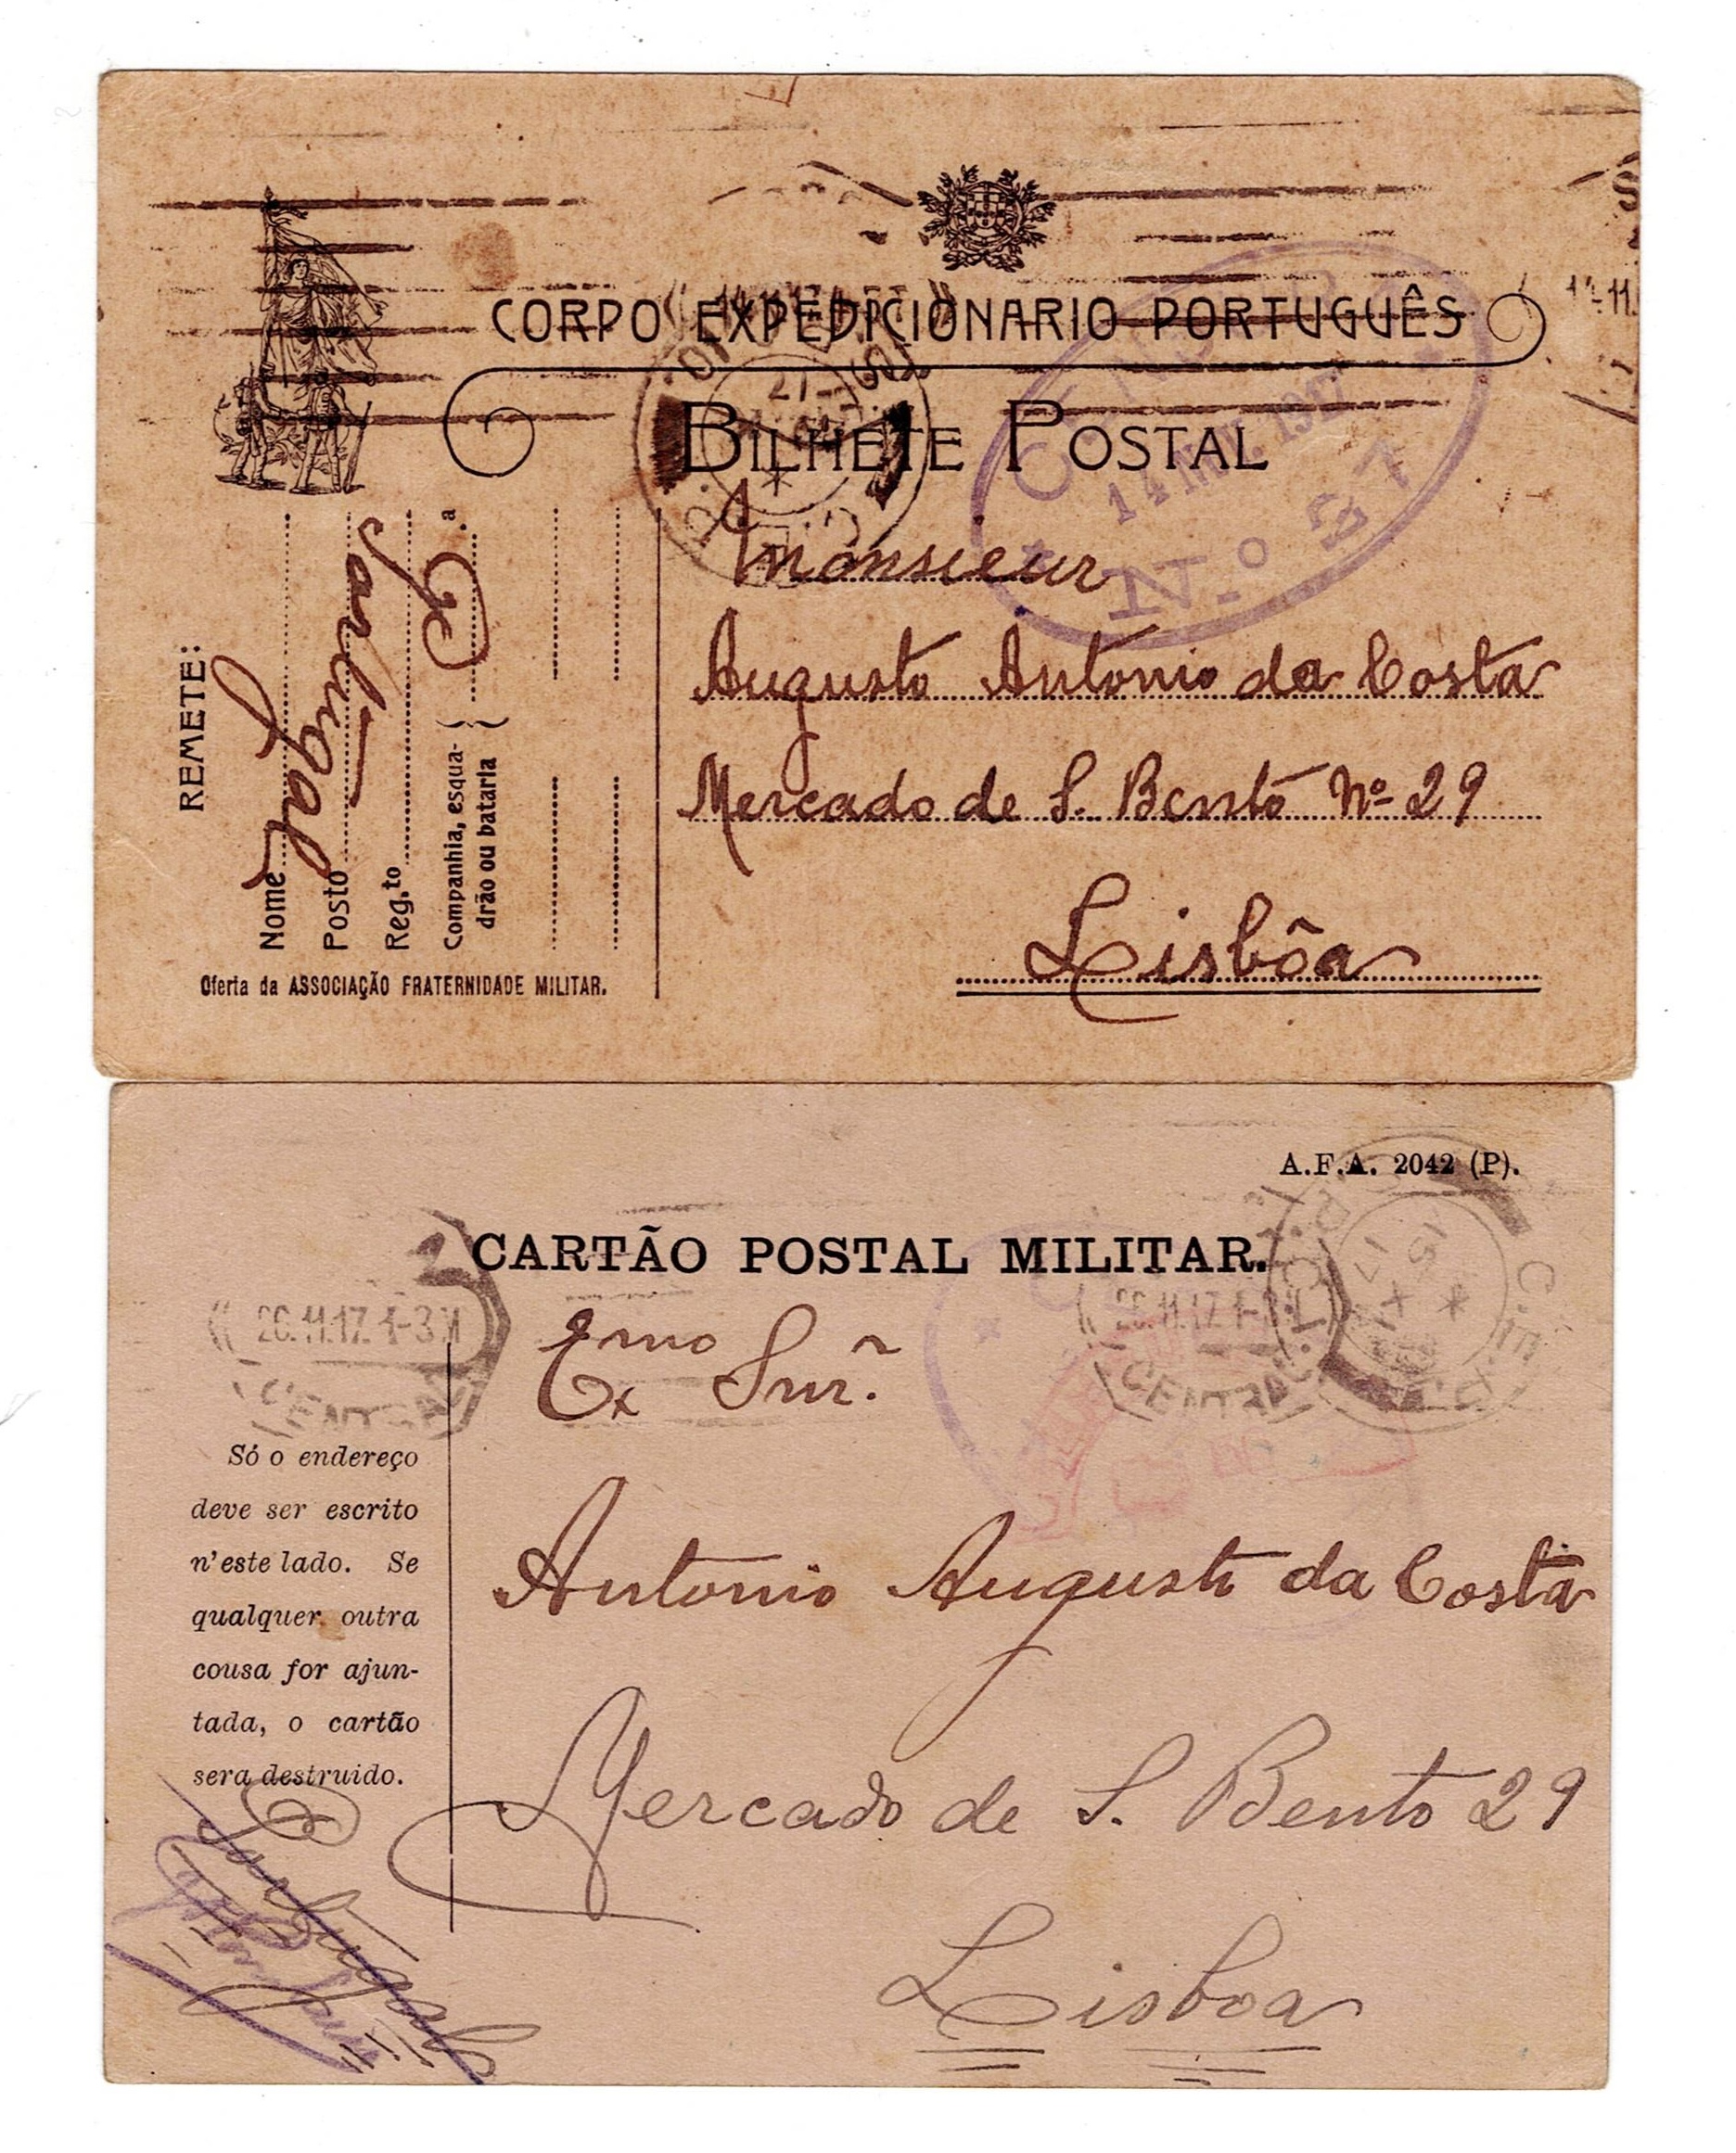 CORPO EXPEDICIONARIO PORTUGUÊS
BILHETE POSTAL
CENSURA
14 1917
N.º 57
Monsieur
Augusto Antonio da Costa
Mercado de S. Bento Nº 29
Lisbôa
REMETE:
Nome
Posto
Reg.to
Companhia, esqua-
drão ou bataria
a
Portugal
Oferta da ASSOCIAÇÃO FRATERNIDADE MILITAR.
A.F.A. 2042 (P).
CARTÃO POSTAL MILITAR.
26.11.17. 1-3
CENTRAL
26.11.17 1-3
CENTRAL
C.E.P.
Exmo Snr.
Antonio Augusto da Costa
Mercado de S. Bento 29
Lisboa
Só o endereço
deve ser escrito
n'este lado. Se
qualquer outra
cousa for ajun-
tada, o cartão
sera destruido.
Portugal